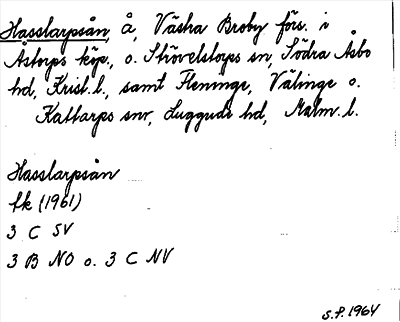 Hasslarpsån, å, Västra Broby förs. i
Åstorps köp., o. Strövelstorps sn, Södra Åsbo
hd, Krist. l., samt Fleninge, Välinge o.
Kattarps snr, Luggude hd, Malm. l.
Hasslarpsån
fk (1961)
3 C SV
3 B NO o. 3 C NV
S.P. 1964